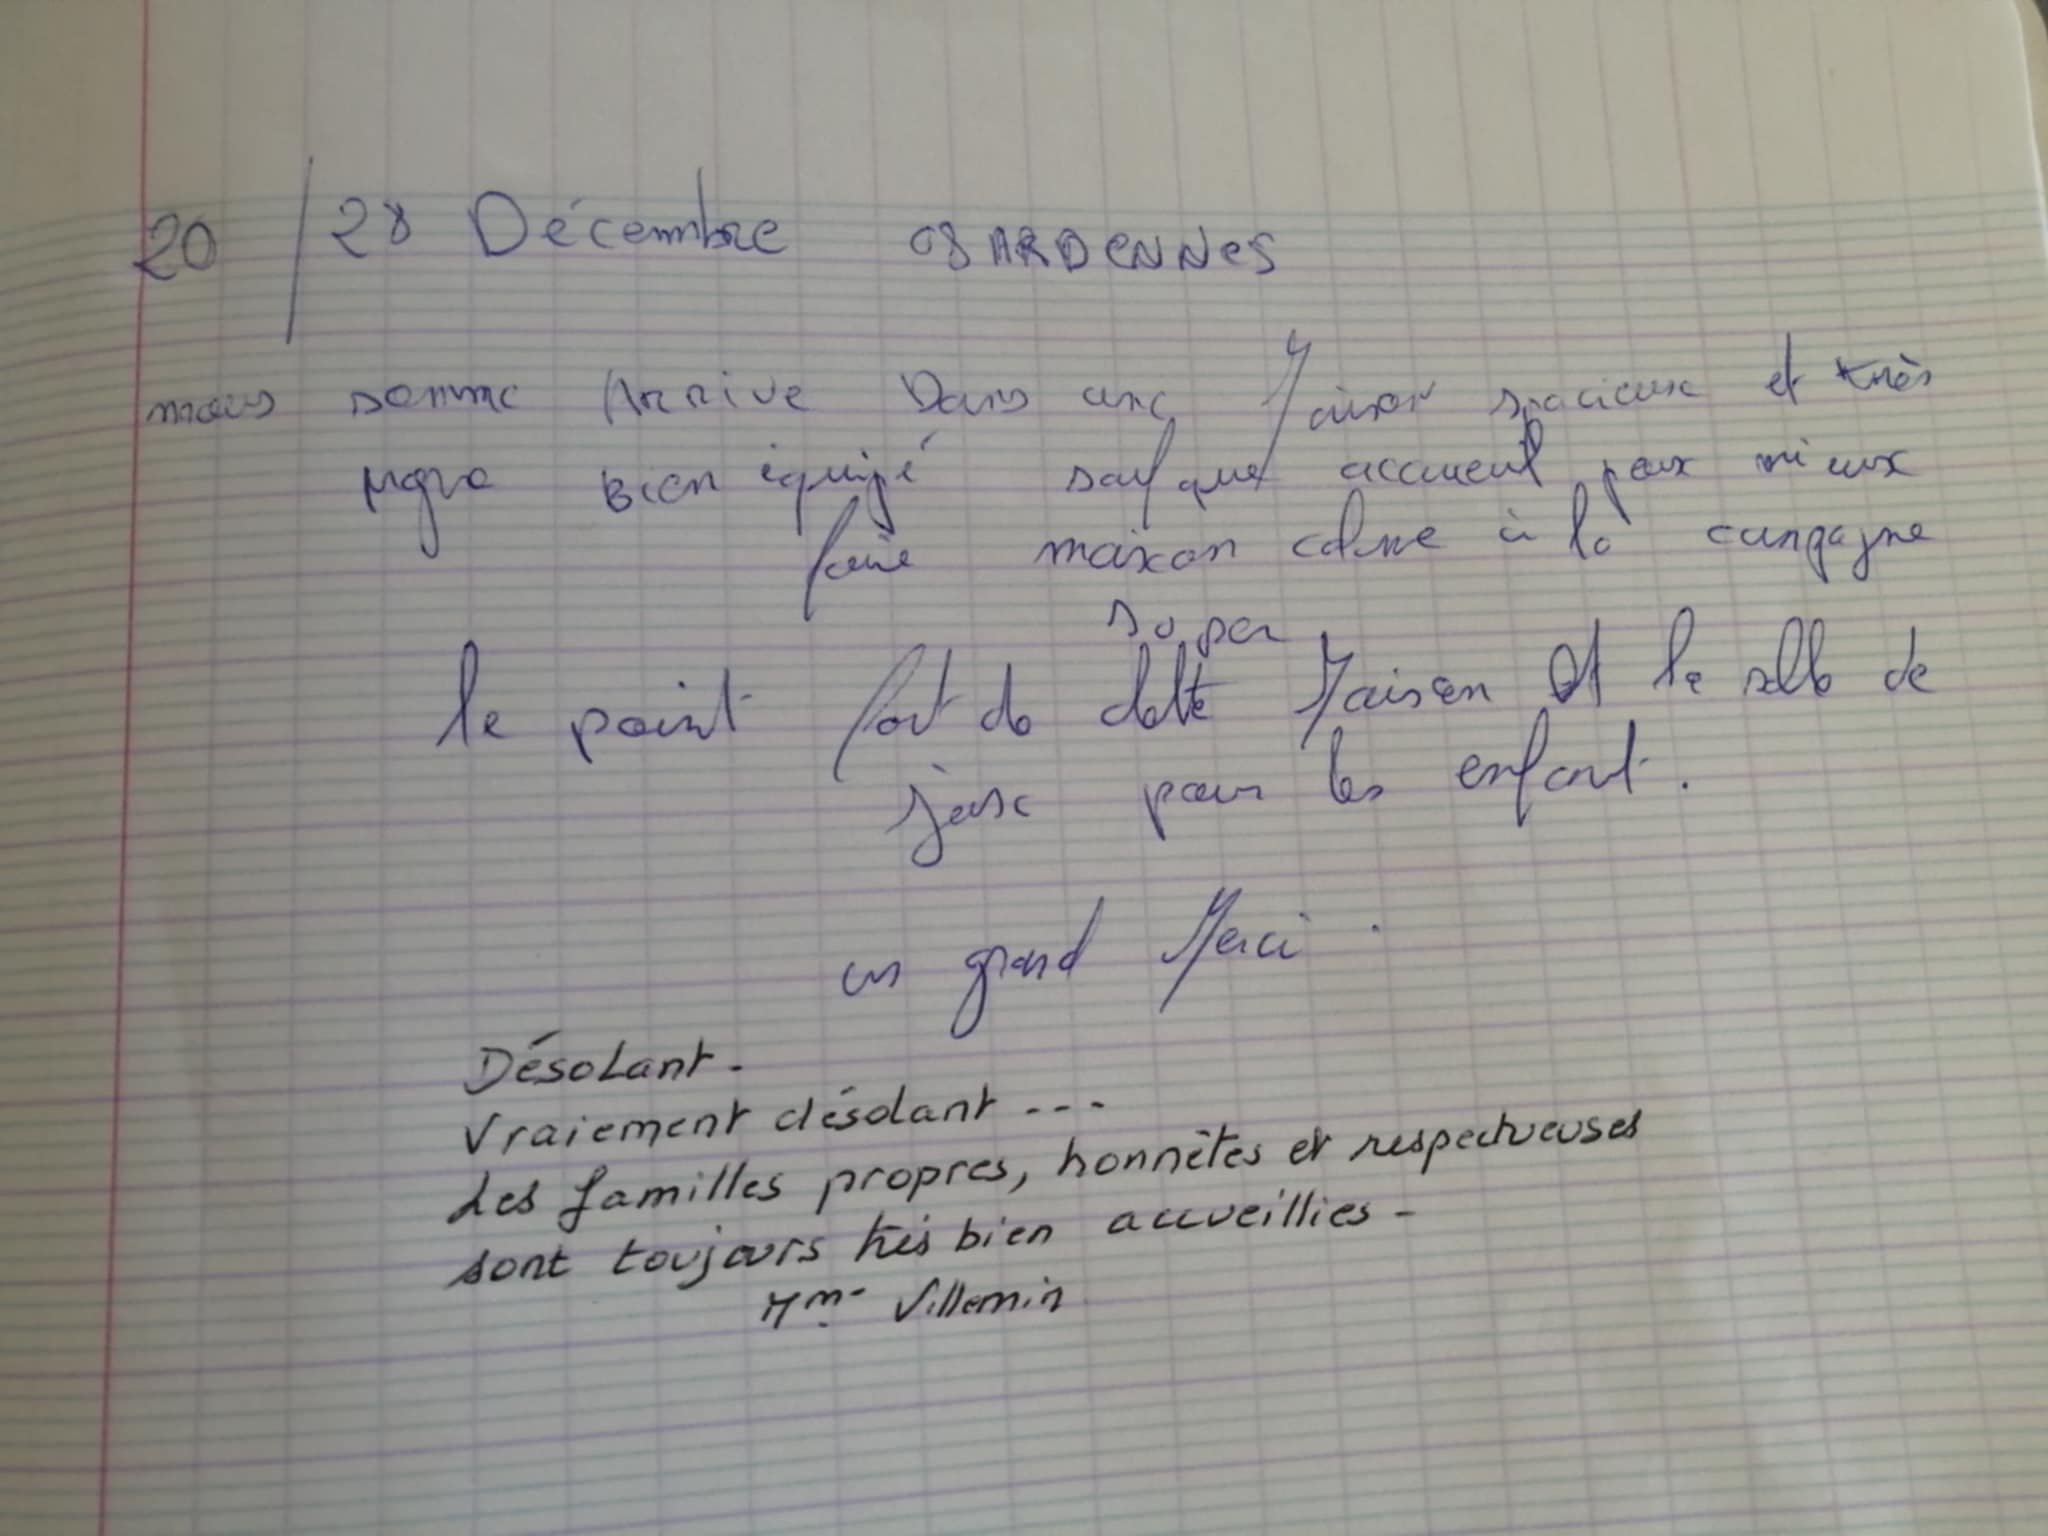 20 / 28 Décembre 08 ARDENNES
nous somme Arrive Dans une Maison spacieuse et très
propre Bien équipé sauf que accueuil peux mieux
faire maison calme à la campagne
soper
le point fort de cette Maison et la salle de
jeux pour les enfant.
un grand Merci.
Désolant.
Vraiement désolant ...
Les familles propres, honnêtes et respectueuses
sont toujours très bien accueillies -
Mme Villemin